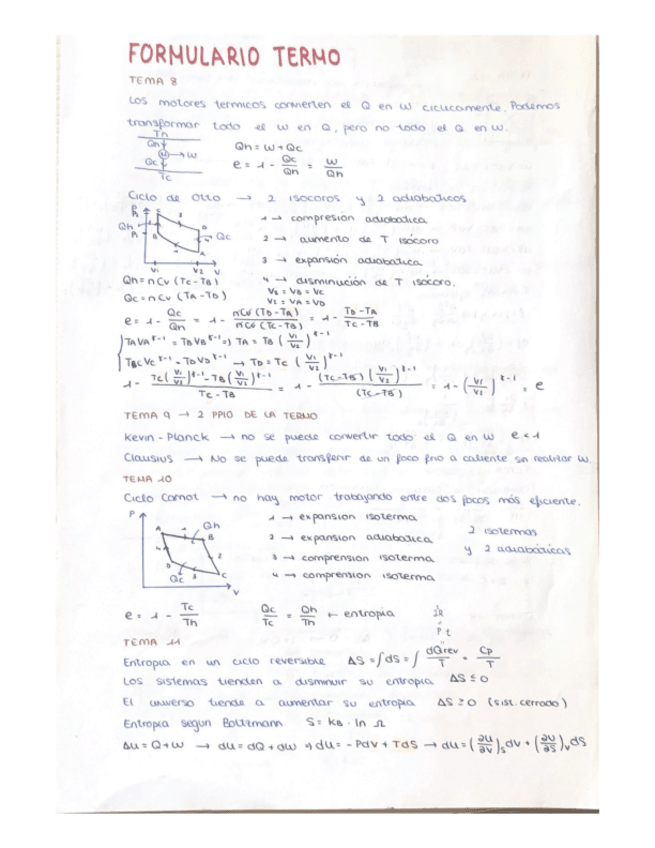 FORMULARIO TERMO
TEMA 8
Los motores termicos convierten el Q en W ciclicamente. Podemos
transformar todo el W en Q, pero no todo el Q en W.
Th
Qh
W → W
Qc
Tc
Qh = W + Qc
e = 1 - Qc/Qh = W/Qh
Ciclo de Otto → 2 isocoros y 2 adiabaticos
1 → compresión adiabatica
2 → aumento de T isócoro
3 → expansión adiabatica
4 → disminución de T isócoro.
Qh
Qc
V1 V2 V
Qh = nCv (Tc - TB)
Qc = nCv (TA - TD)
V1 = VB = VC
V2 = VA = VD
e = 1 - Qc/Qh = 1 - nCv (TD - TA)/nCv (Tc - TB) = 1 - TD - TA/Tc - TB
TAVA^γ-1 = TBVB^γ-1 ⇒ TA = TB (V1/V2)^γ-1
TcVc^γ-1 = TDVD^γ-1 → TD = Tc (V1/V2)^γ-1
1 - Tc(V1/V2)^γ-1 - TB(V1/V2)^γ-1/Tc - TB = 1 - (Tc - TB) (V1/V2)^γ-1/(Tc - TB) = 1 - (V1/V2)^γ-1 = e
TEMA 9 → 2 PPIO DE LA TERMO
Kevin - Planck → no se puede convertir todo el Q en W e < 1
Clausius → No se puede transferir de un foco frio a caliente sin realizar W.
TEMA 10
Ciclo Carnot → no hay motor trabajando entre dos focos más eficiente.
1 → expansion isoterma
2 → expansion adiabatica
3 → comprension isoterma
4 → comprension isoterma
2 isotermas
y 2 adiabáticas
P
A
Qh
B
1
2
3
4
D
C
Qc
V
e = 1 - Tc/Th
Qc/Tc = Qh/Th ← entropia
TEMA 11
P t
Entropia en un ciclo reversible ΔS = ∫dS = ∫ dQrev/T = Cp/T
Los sistemas tienden a disminuir su entropia ΔS ≤ 0
El universo tiende a aumentar su entropia ΔS ≥ 0 (sist. cerrado)
Entropia segun Boltzmann S = kB · ln Ω
Δu = Q + W → du = dQ + dW ⇒ du = - PdV + TdS → du = (∂U/∂V)s dV + (∂U/∂S)v dS